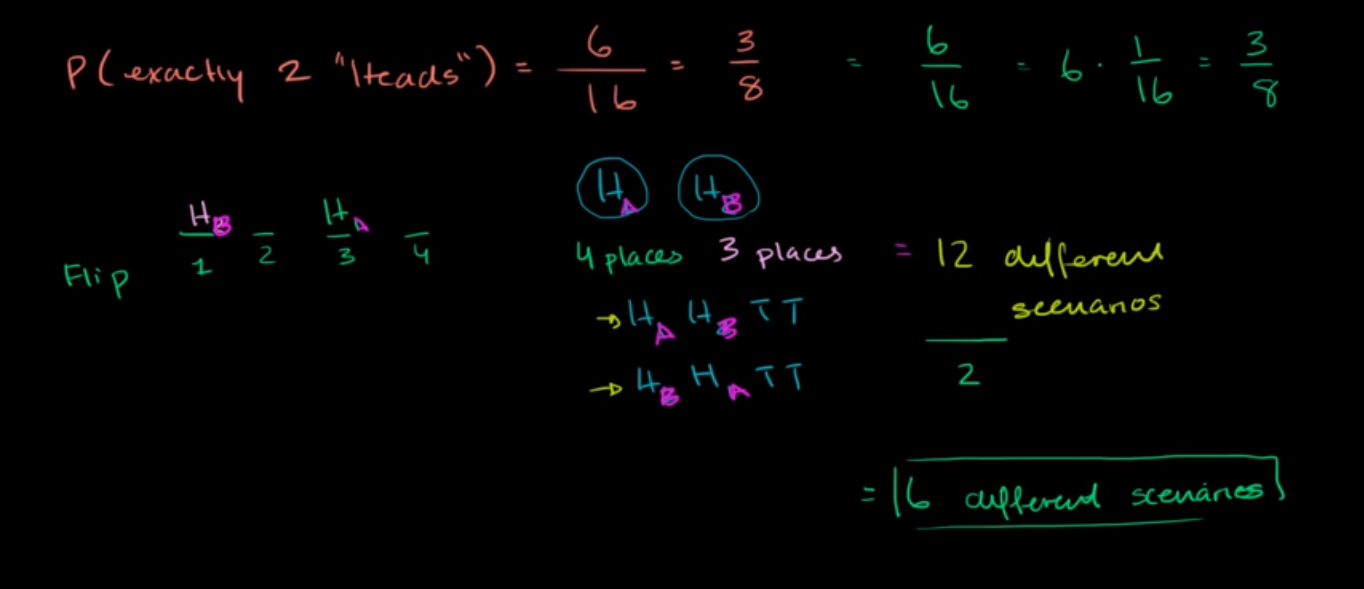 P(exactly 2 "Heads") = 6/16 = 3/8 = 6/16 = 6 · 1/16 = 3/8
H_A H_B
H_B H_A
Flip 1 2 3 4
4 places 3 places = 12 different
scenarios
→ H_A H_B T T
2
→ H_B H_A T T
= 6 different scenarios